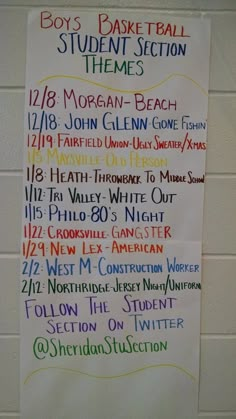 Boys Basketball
Student Section
Themes
12/8: Morgan-Beach
12/18: John Glenn-Gone Fishin
12/19: Fairfield Union-Ugly Sweater/Xmas
1/5 Maysville-Old Person
1/8: Heath-Throwback To Middle School
1/12: Tri Valley-White Out
1/15: Philo-80's Night
1/22: Crooksville-Gangster
1/29: New Lex-American
2/2: West M-Construction Worker
2/12: Northridge-Jersey Night/Uniform
Follow The Student
Section On Twitter
@SheridanStuSection